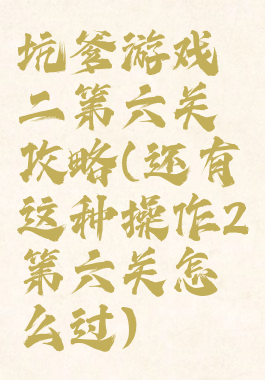 坑爹游戏
二第六关
攻略(还有
这种操作2
第六关怎
么过)